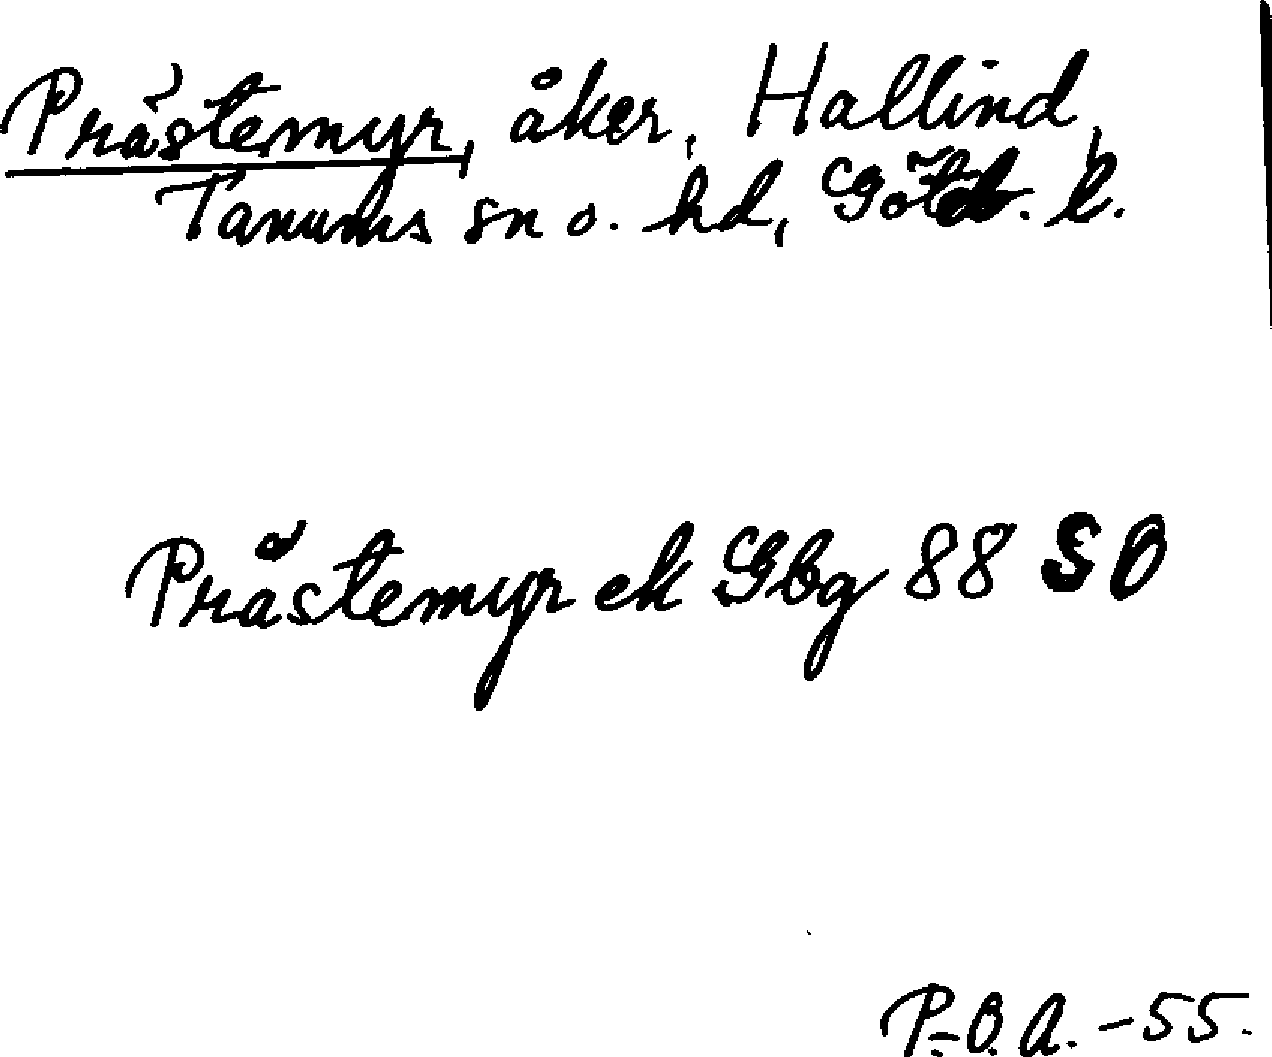 Prästemyr, åker, Hallind,
Tanums sn o. hd, Göteb. l.
Prästemyr ek Gbg 88 SO
P.O.A. -55.